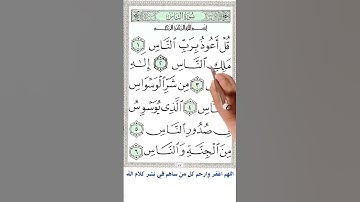 سُورَةُ النَّاسِ
بِسْمِ اللَّهِ الرَّحْمَٰنِ الرَّحِيمِ
قُلْ أَعُوذُ بِرَبِّ النَّاسِ ١
مَلِكِ النَّاسِ ٢ إِلَٰهِ
٣ مِن شَرِّ الْوَسْوَاسِ
٤ الَّذِي يُوَسْوِسُ
صُدُورِ النَّاسِ ٥
مِنَ الْجِنَّةِ وَالنَّاسِ ٦
اللهم اغفر وارحم كل من ساهم في نشر كلام الله